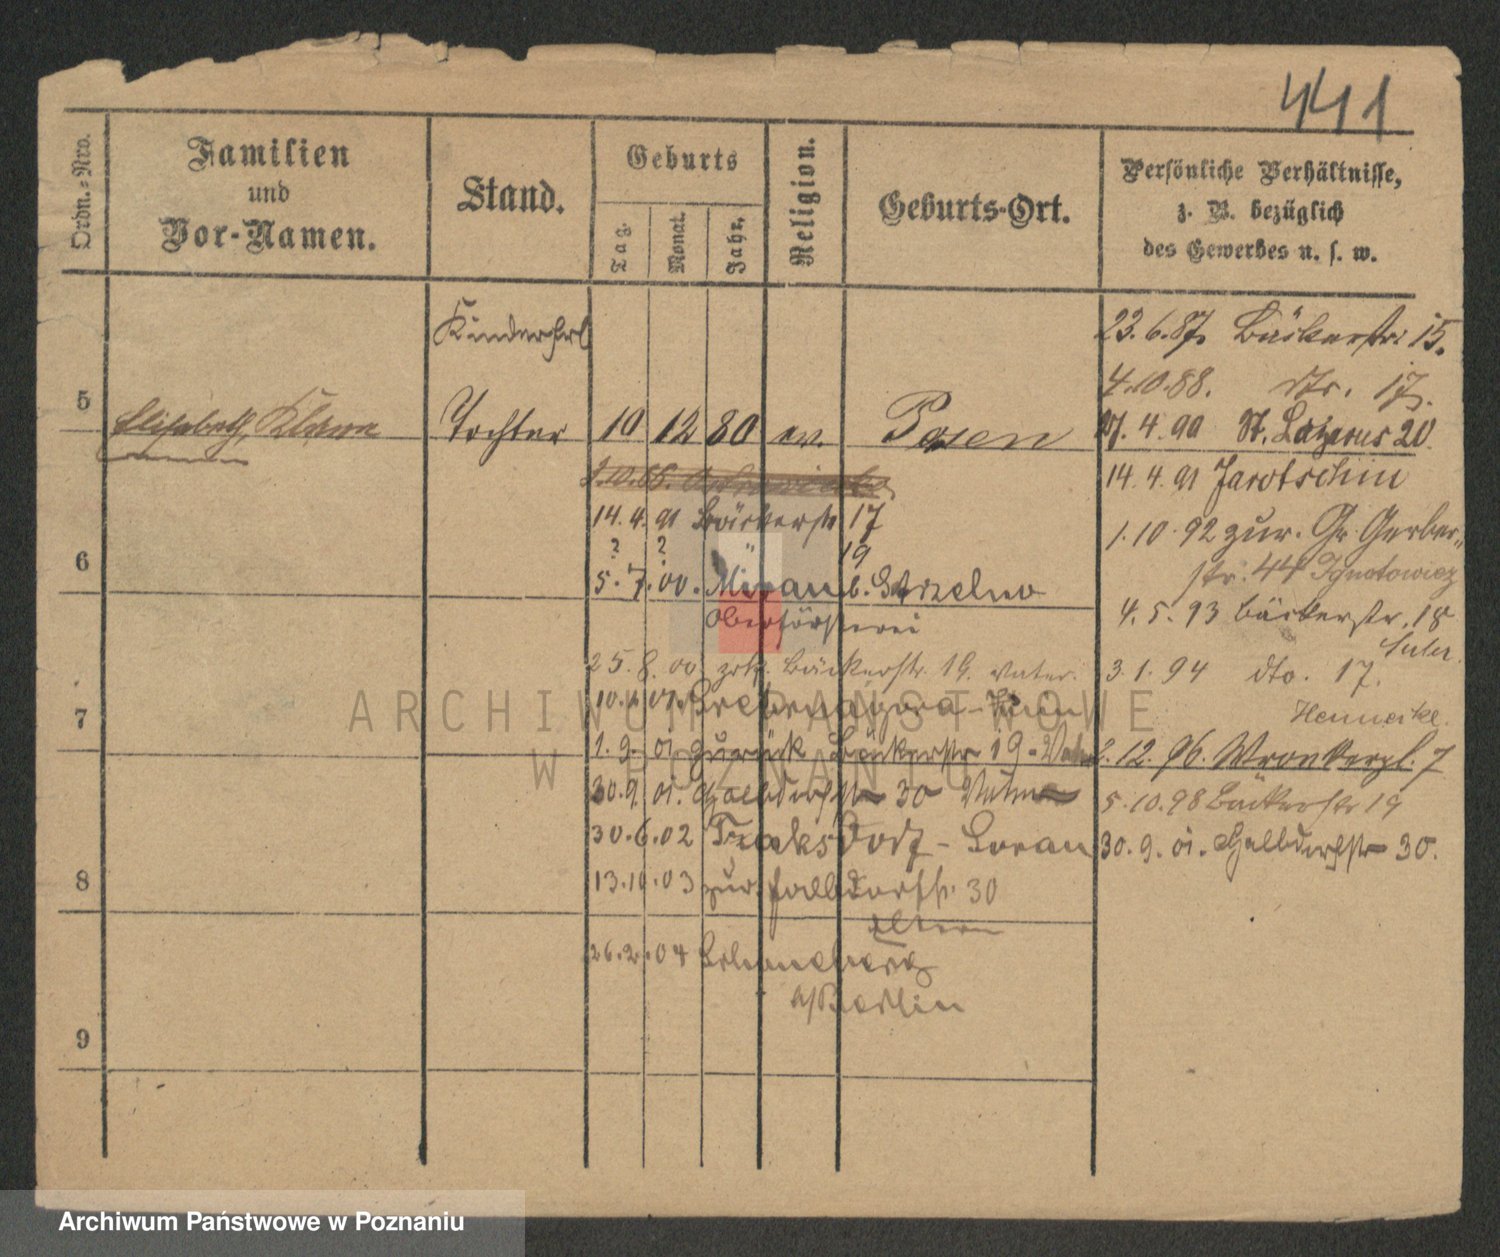 441
Ordn.=Nro.
Familien
und
Vor-Namen.
Stand.
Geburts
Tag.
Monat.
Jahr.
Religion.
Geburts-Ort.
Persönliche Verhältnisse,
z. B. bezüglich
des Gewerbes u. s. w.
5
Elisabeth, Klara
Tochter
10 12 80 ev.
Posen
14. 4. 91 Bäckerstr 17
? ? " 19
5. 7. 00. Mirau b. Strzelno
Oberförsterei
25. 8. 00 zrk. Bäckerstr. 19. Vater.
1. 9. 01 zurück Bäckerstr 19 - Vater
30. 9. 01. Halbdorfstr 30
30. 6. 02
13. 10. 03 zur. Halbdorfstr. 30
Eltern
26. 2. 04 Schöneberg
b/Berlin
23. 6. 87. Bäckerstr. 15.
4. 10. 88. dto. 17.
27. 4. 90 St. Lazarus 20.
14. 4. 91 Jarotschin
1. 10. 92 zur. Gr. Gerber=
str. 44 Ignatowicz
4. 5. 93 Bäckerstr. 18
3. 1. 94 dto. 17.
2. 12. 96. Wronkerpl. 7
5. 10. 98 Bäckerstr 19
30. 9. 01. Halbdorfstr 30.
6
7
8
9
ARCHIWUM PAŃSTWOWE
W POZNANIU
Archiwum Państwowe w Poznaniu